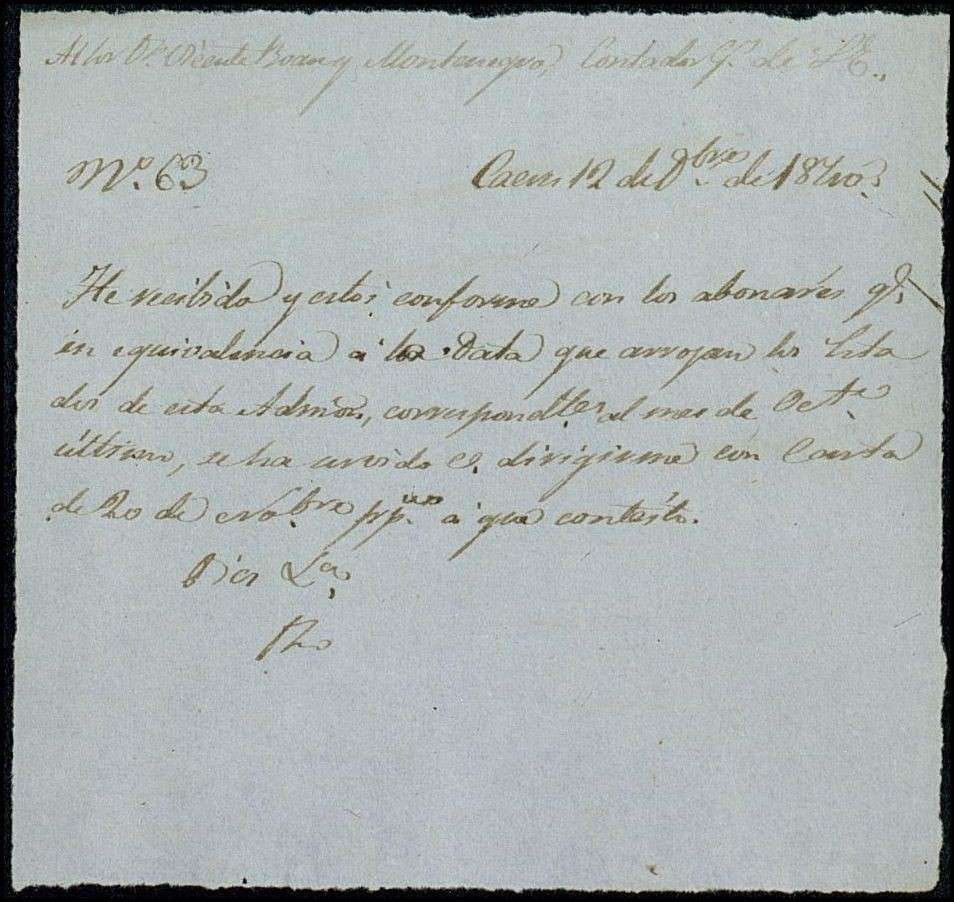 Al Sor Dn. Vicente Boan y Montenegro, Contador Gl. de
No. 63
Caceres 12 de Dbre. de 18
He recibido y estoi conforme con los abonarés q.
en equivalencia á la Data que arrojan los Esta
dos de esta Admon, correspondtes. al mes de Octe.
último, se ha servido dirigirme con Carta
de 20 de Nobre ppmo. á que contesto.
Dios